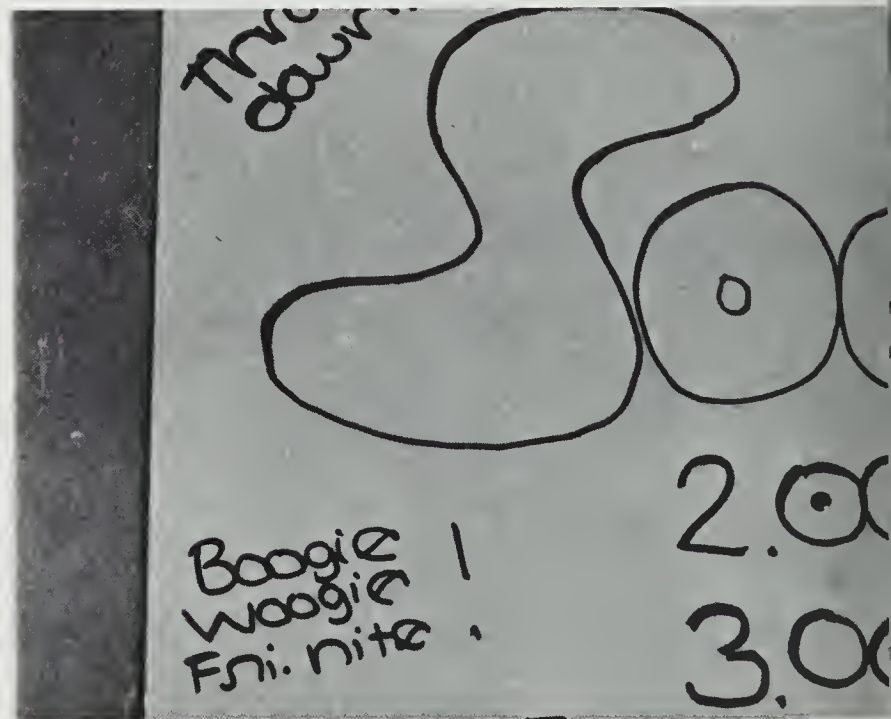 Thro
down
So
Boogie
Woogie
Fri. nite !
2.00
3.00